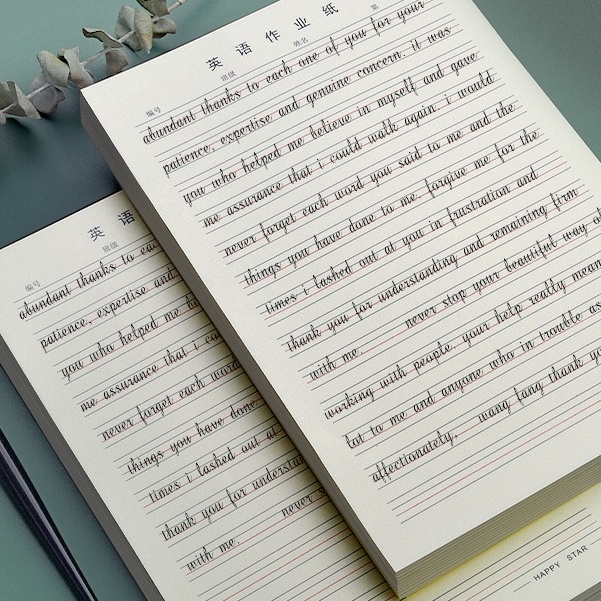 英语作业纸
编号 班级 姓名 第
abundant thanks to each one of you for your
patience, expertise and genuine concern. it was
you who helped me believe in myself and gave
me assurance that i could walk again. i would
never forget each word you said to me and the
things you have done to me. forgive me for the
times i lashed out at you in frustration and
thank you for understanding and remaining firm
with me. never stop your beautiful way
working with people. your help really mean
lot to me and anyone who in trouble as
affectionately, wang fang thank
英语
编号 班级
abundant thanks to
patience, expertise and
you who helped me
me assurance that i
never forget each
things you have done
times i lashed out at
thank you for
with me. never
HAPPY STAR